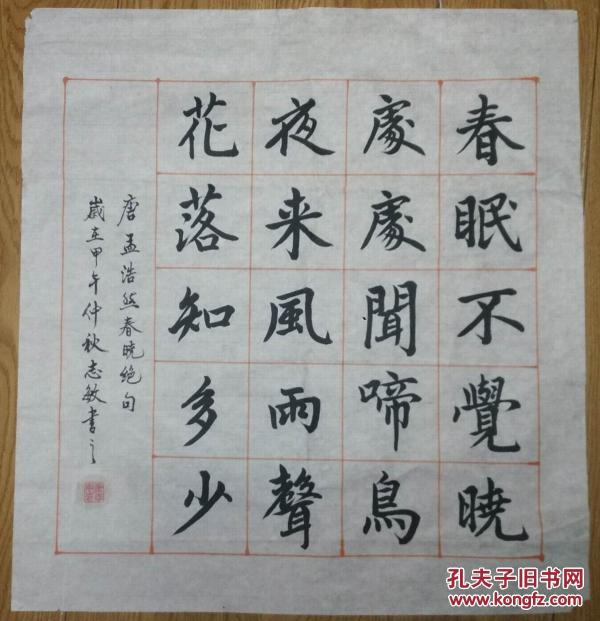 春眠不覺暁
處處聞啼鳥
夜来風雨聲
花落知多少
唐孟浩然春晓绝句
歲在甲午仲秋志敏書之
孔夫子旧书网
www.kongfz.com